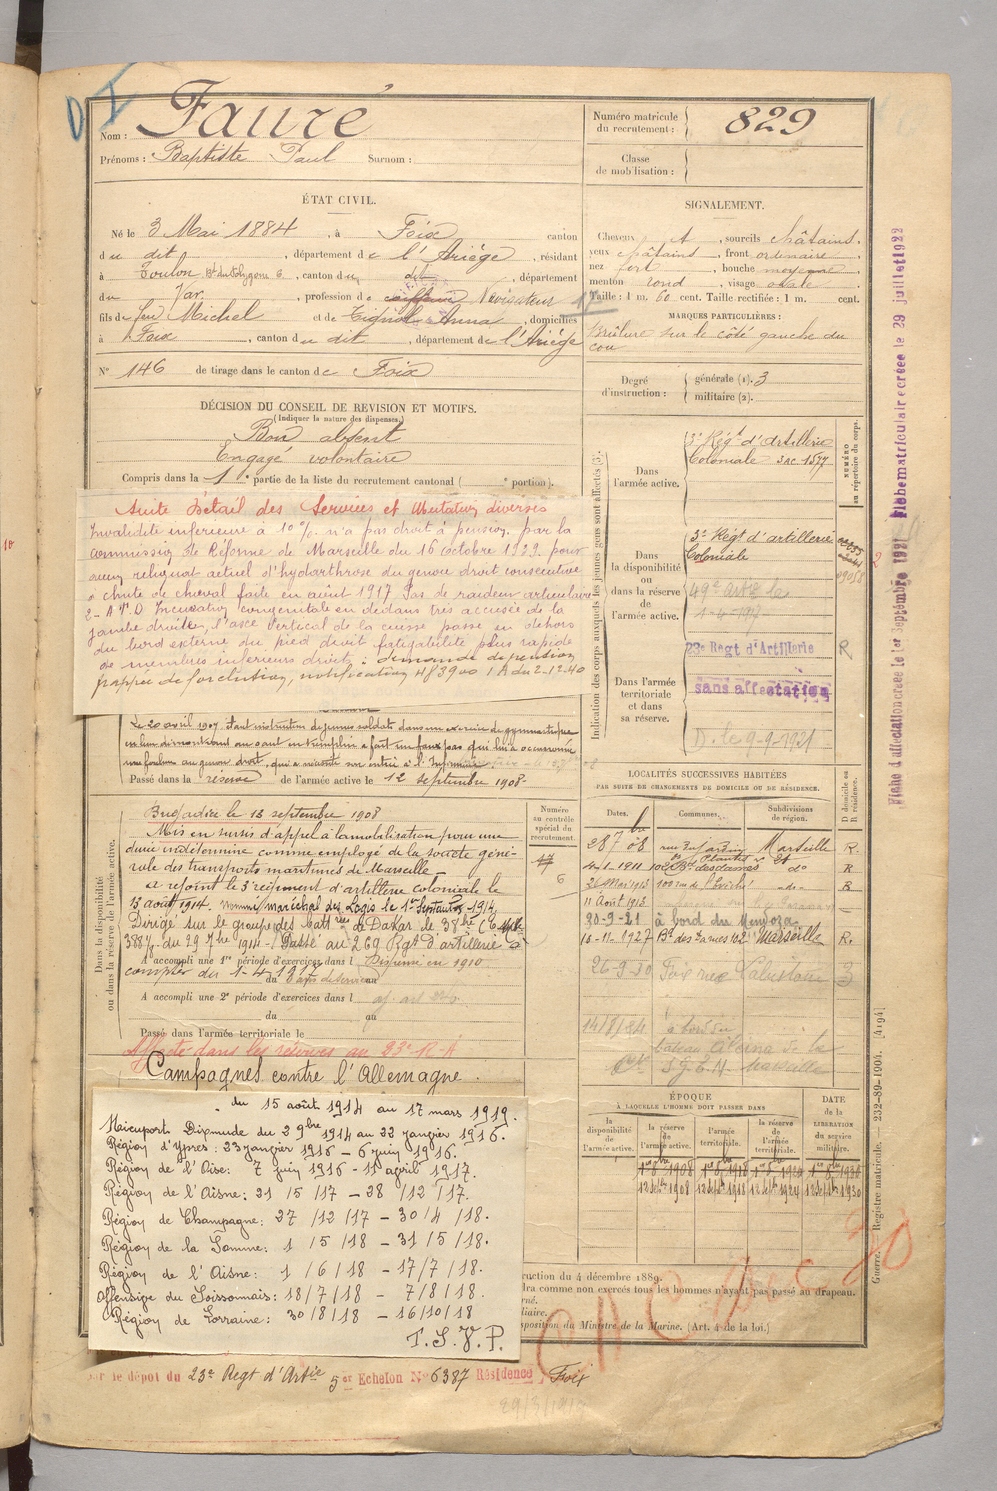 Nom : Fauré
Prénoms : Baptiste Paul Surnom :
Numéro matricule du recrutement : 829
Classe de mobilisation :
ÉTAT CIVIL.
Né le 3 Mai 1884, à Foix canton
du dit, département de l'Ariège, résidant
à Toulon, Bd du Polygone 6, canton du dit, département
du Var, profession de coiffeur Navigateur
fils de feu Michel et de Anna, domiciliés
à Foix, canton du dit, département de l'Ariège
N° 146 de tirage dans le canton de Foix
SIGNALEMENT.
Cheveux et, sourcils châtains.
yeux châtains, front ordinaire,
nez fort, bouche moyenne,
menton rond, visage ovale
Taille : 1 m. 60 cent. Taille rectifiée : 1 m. cent.
MARQUES PARTICULIÈRES :
Brûlure sur le côté gauche du
cou
Degré d'instruction : générale (1). 3
militaire (2).
DÉCISION DU CONSEIL DE REVISION ET MOTIFS.
(Indiquer la nature des dispenses.)
Bon absent
Engagé volontaire
Compris dans la 1e partie de la liste du recrutement cantonal ( e portion).
Suite Détail des Services et Mutations diverses
Invalidité inférieure à 10 %. n'a pas droit à pension. par la
commission de Réforme de Marseille du 16 octobre 1929. pour
reliquat actuel d'hydarthrose du genou droit consécutive
à chute de cheval faite en août 1917 Pas de raideur articulaire
2- Incurvation congénitale en dedans très accusée de la
jambe droite, l'axe vertical de la cuisse passe en dehors
du bord externe du pied droit fatigabilité plus rapide
de membres inférieurs droits : demande de pension
frappée de forclusion, notification 483900 1 A du 2-12-40
Le 20 avril 1907. Etant instruction de jeunes soldats dans un exercice de gymnastique
en lieu démontrant un saut en tremplin a fait un faux pas qui lui a occasionné
une foulure au genou droit, qui a nécessité son entrée à l'Infirmerie
Passé dans la réserve de l'armée active le 12 septembre 1908
Indication des corps auxquels les jeunes gens sont affectés (3).
Dans l'armée active.
3e Régt d'Artillerie
Coloniale 3 ac 1577
NUMÉRO au répertoire du corps.
Dans la disponibilité ou dans la réserve de l'armée active.
3e Régt d'artillerie
Coloniale
23e Regt d'Artillerie R
Dans l'armée territoriale et dans sa réserve.
sans affectation
D. le 9-9-1921
Dans la disponibilité ou dans la réserve de l'armée active.
Brigadier le 13 septembre 1908
Mis en sursis d'appel à la mobilisation pour une
durée indéterminée comme employé de la société géné-
rale des transports maritimes de Marseille
a rejoint le 3e régiment d'artillerie coloniale le
15 août 1914. nommé maréchal des Logis le 1er Septembre 1914.
Dirigé sur le groupe des batt ries de Dakar le 3 8bre
388 %. du 29 7bre 1914 - Passé au 269 Rgt d'artillerie
A accompli une 1re période d'exercices dans l Dispensé en 1910
compter du 1-4-1917
A accompli une 2e période d'exercices dans l
du au
Passé dans l'armée territoriale le
Affecté dans les réserves au 23e R-A
Campagnes contre l'Allemagne.
du 15 août 1914 au 17 mars 1919.
Nieuport Dixmude du 2 9bre 1914 au 22 janvier 1916.
Région d'Ypres : 23 janvier 1916 - 6 juin 1916.
Région de l'Oise : 7 juin 1916 - 11 avril 1917.
Région de l'Aisne : 21/5/17 - 28/12/17.
Région de Champagne : 27/12/17 - 30/4/18.
Région de la Somme : 1/5/18 - 31/5/18.
Région de l'Aisne : 1/6/18 - 17/7/18.
Offensive du Soissonnais : 18/7/18 - 7/8/18.
Région de Lorraine : 30/8/18 - 16/10/18
T.S.V.P.
Numéro au contrôle spécial du recrutement.
6
LOCALITÉS SUCCESSIVES HABITÉES
PAR SUITE DE CHANGEMENTS DE DOMICILE OU DE RÉSIDENCE.
Dates. Communes. Subdivisions de région. D domicile ou R résidence.
28 7bre 08 Marseille R.
4-1-1911 102 Bd des dames do R
26 Mai 1913 -do- R
11 Août 1913
30-9-21 à bord du Mendoza
10-11-1927 Bd des Dames 102 Marseille R.
26-9-30 Foix rue 3
14/8/34 à bord du
bateau de la
S G T M Marseille
ÉPOQUE
À LAQUELLE L'HOMME DOIT PASSER DANS
la disponibilité de l'armée active. la réserve de l'armée active. l'armée territoriale. la réserve de l'armée territoriale. DATE de la LIBÉRATION du service militaire.
1er 8bre 1908
12 septbre 1908 12 septbre 1918 12 septbre 1924 12 septbre 1930
ruction du 4 décembre 1889.
dra comme non exercés tous les hommes n'ayant pas passé au drapeau.
rné.
iliaire.
sposition du Ministre de la Marine. (Art. 4 de la loi.)
par le dépôt du 23e Regt d'Artie 5er Echelon N° 6387 Résidence Foix
Guerre. Registre matricule. — 232-89-1904. [4194]
Fiche d'affectation créée le 1er Septembre 1921 Fiche matriculaire créée le 29 juillet 1922